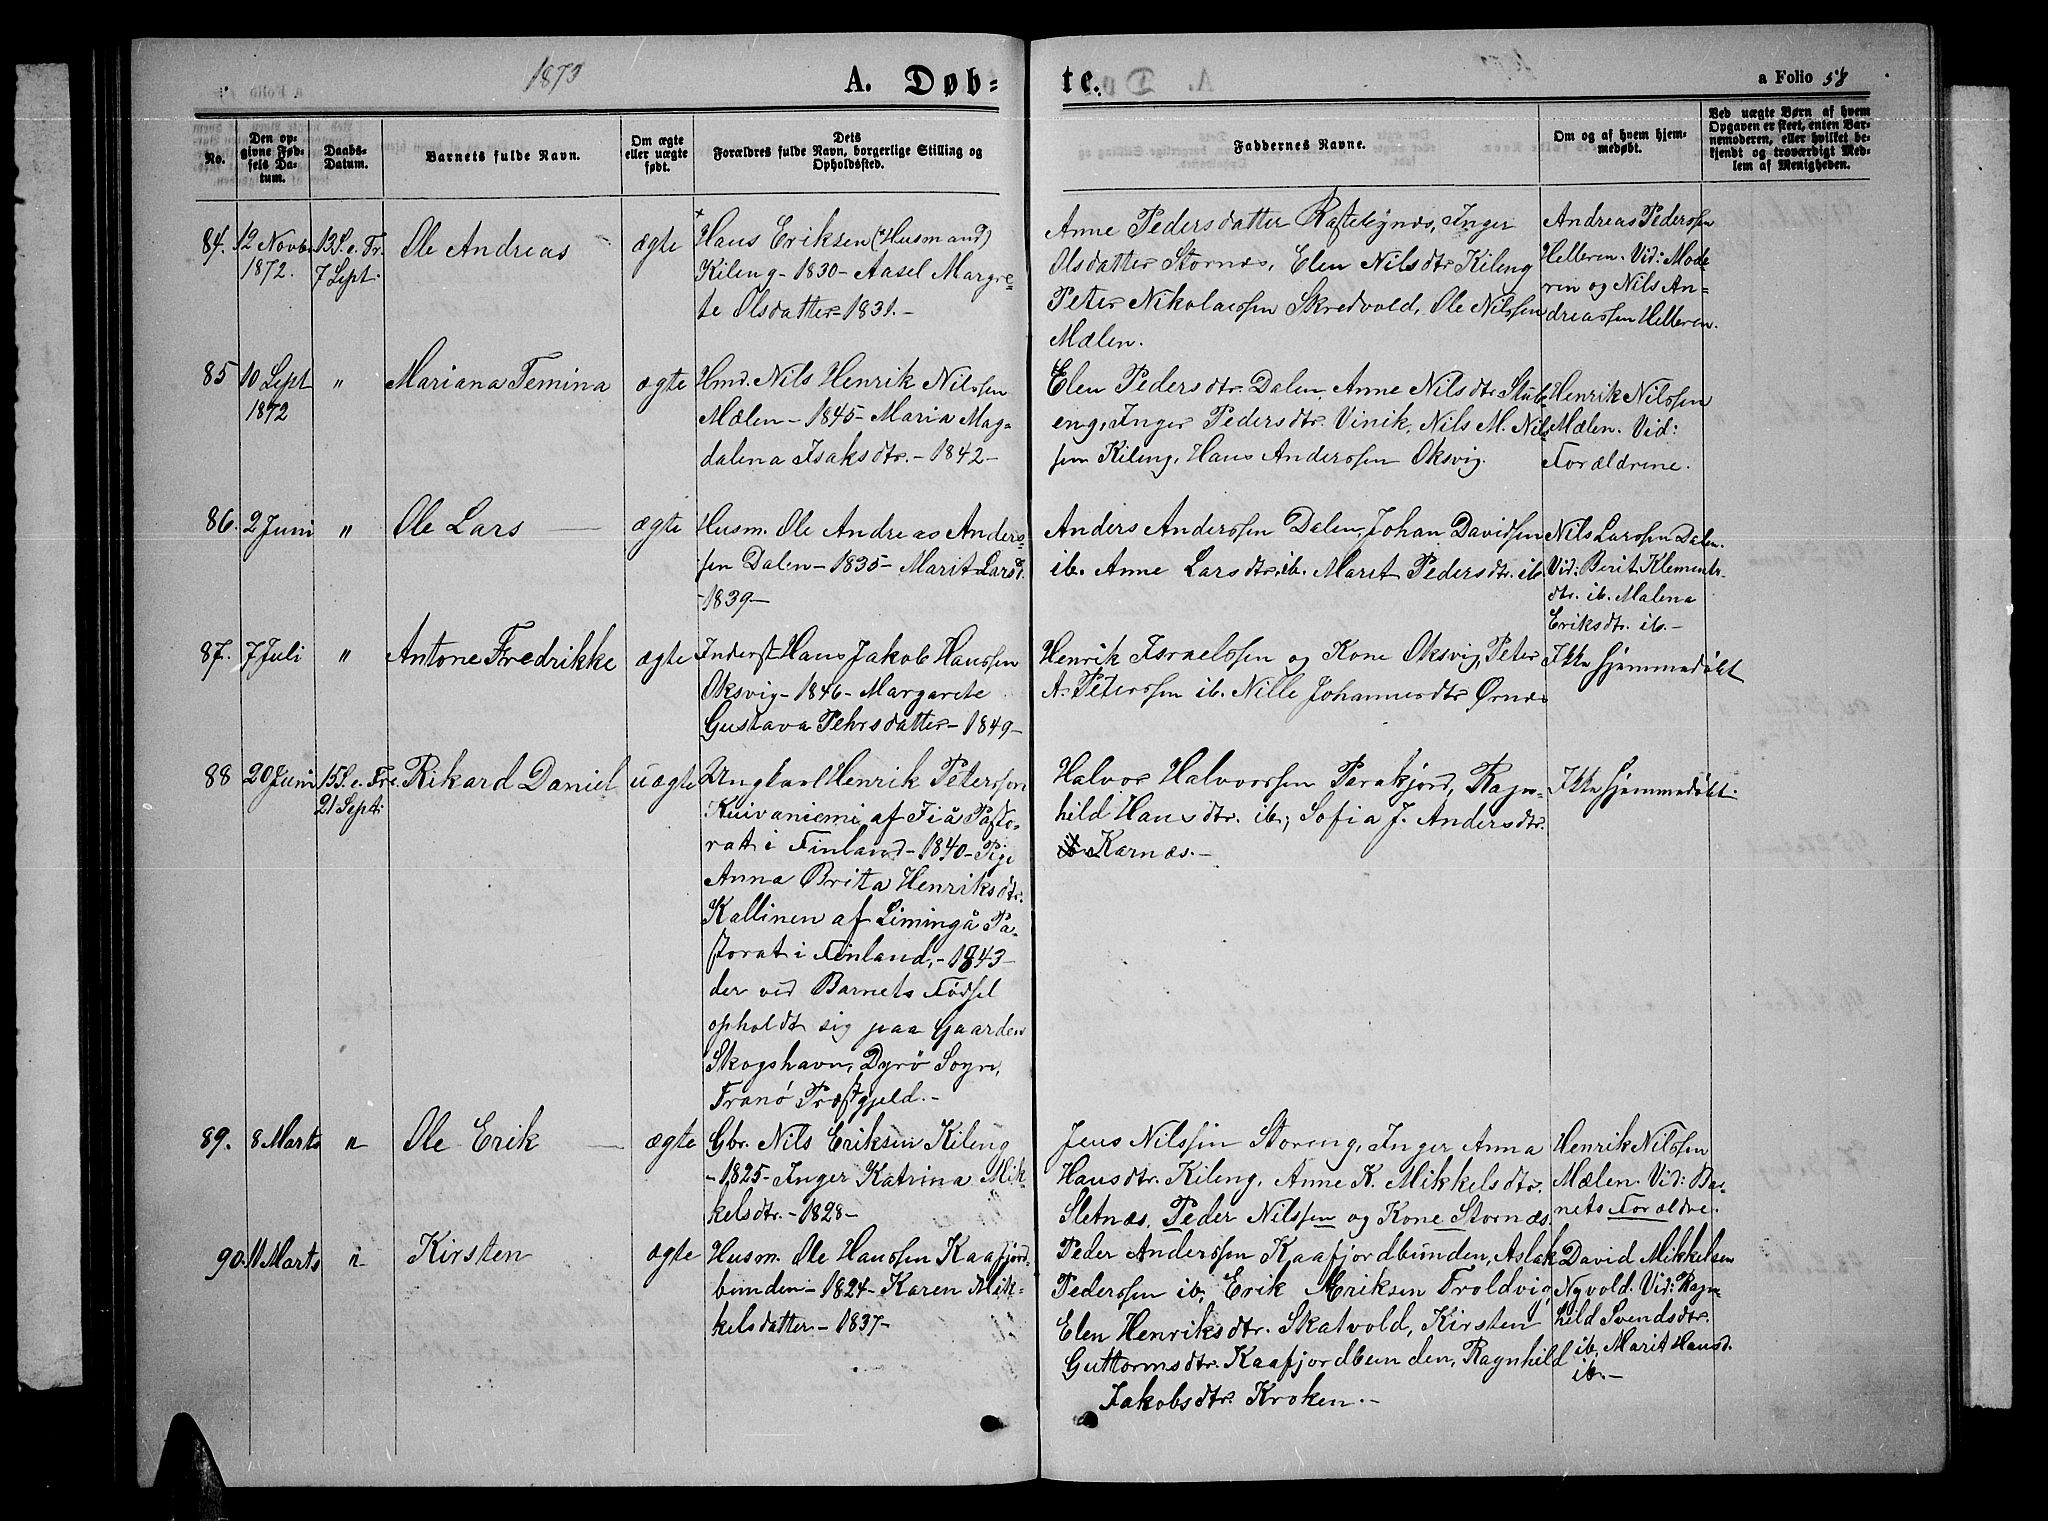 1873
A. Døb-
te.
a Folio 58
No.
Den op-
givne Fød-
sels Da-
tum.
Daabs-
Datum.
Barnets fulde Navn.
Om ægte
eller uægte
født.
Dets
Forældres fulde Navn, borgerlige Stilling og
Opholdssted.
Faddernes Navne.
Om og af hvem hjem-
medøbt.
Ved uægte Børn af hvem
Opgaven er skeet, enten Bar-
nemoderen, eller hvilket be-
kjendt og troværdigt Med-
lem af Menigheden.
84.
12 Novbr
1872.
13 S. e. Tr.
7 Sept:
Ole Andreas
ægte
Hans Eriksen (Husmand)
Kileng - 1830 - Aasel Margre-
te Olsdatter - 1831. -
Anne Pedersdatter Inger
Olsdatter Stornæs, Elen Nilsdtr Kileng
Peter Nikolaissen Skredvold, Ole Nilssen
Mælen.
Andreas Pederssen
Helleren. Vid: Mode-
ren og Nils An-
dreassen Helleren.
85
10 Sept
1872
"
Mariana Temina
ægte
Hmd. Nils Henrik Nilssen
Mælen - 1845 - Maria Mag-
dalena Isaksdtr. - 1842 -
Elen Pedersdtr. Dalen, Anne Nilsdtr Stub-
eng, Inger Pedersdtr. Vinik, Nils M. Nils
sen Kileng, Hans Anderssen Oksvig.
Henrik Nilssen
Mælen. Vid:
Forældrene.
86.
2 Juni
"
Ole Lars
ægte
Husm. Ole Andreas Anders-
sen Dalen - 1835 - Marit Larsd.
- 1839 -
Anders Anderssen Dalen, Johan Davidsen
ib. Anne Larsdtr. ib. Marit Pedersdtr. ib.
Nils Larssen Dalen.
Vid: Berit Klements-
dtr. ib. Malena
Eriksdtr. ib. -
87.
7 Juli
"
Antone Fredrikke
ægte
Inderst Hans Jakob Hanssen
Oksvig - 1846 - Margarete
Gustava Pehrsdatter - 1849 -
Henrik Israelssen og Kone Oksvig, Peter
A. Peterssen ib. Nille Johannesdtr Ørnæs
Ikke hjemmedøbt
88
20 Juni
15 S. e. Tr.
21 Sept:
Rikard Daniel
uægte
Ungkarl Henrik Petersson
Kuivaniemi af Pasto-
rat i Finland - 1840 - Pige
Anna Brita Henriksdtr.
Kallinen af Limingå Pa-
storat i Finland, - 1843 -
der ved Barnets Fødsel
opholdt sig paa Gaarden
Skogshavn, Dyrø Sogn,
Tranø Præstgjeld. -
Halvor Halvorssen Parakjord, Ragn-
hild Hansdtr. ib., Sofia J. Andersdtr.
Karnæs. -
Ikke hjemmedøbt.
89.
8 Marts
"
Ole Erik
ægte
Gbr. Nils Eriksen Kileng
- 1825 - Inger Katrina Mik-
kelsdtr. - 1828 -
Jens Nilssen Storeng, Inger Anna
Hansdtr. Kileng, Anne K. Mikkelsdtr.
Sletnæs, Peder Nilssen og Kone Stornæs.
Henrik Nilssen
Mælen. Vid: Bar-
nets Forældre.
90.
11 Marts
"
Kirsten
ægte
Husm. Ole Hanssen Kaafjord-
bunden - 1824 - Karen Mik-
kelsdatter - 1837 -
Peder Anderssen Kaafjordbunden, Aslak
Pederssen ib, Erik Eriksen Troldvig,
Elen Henriksdtr. Skatvold, Kirsten
Guttormsdtr. Kaafjordbunden, Ragnhild
Jakobsdtr. Kroken. -
David Mikkelsen
Nyvold. Vid: Ragn-
hild Svendsdtr.
ib, Marit Hansd.
ib. -